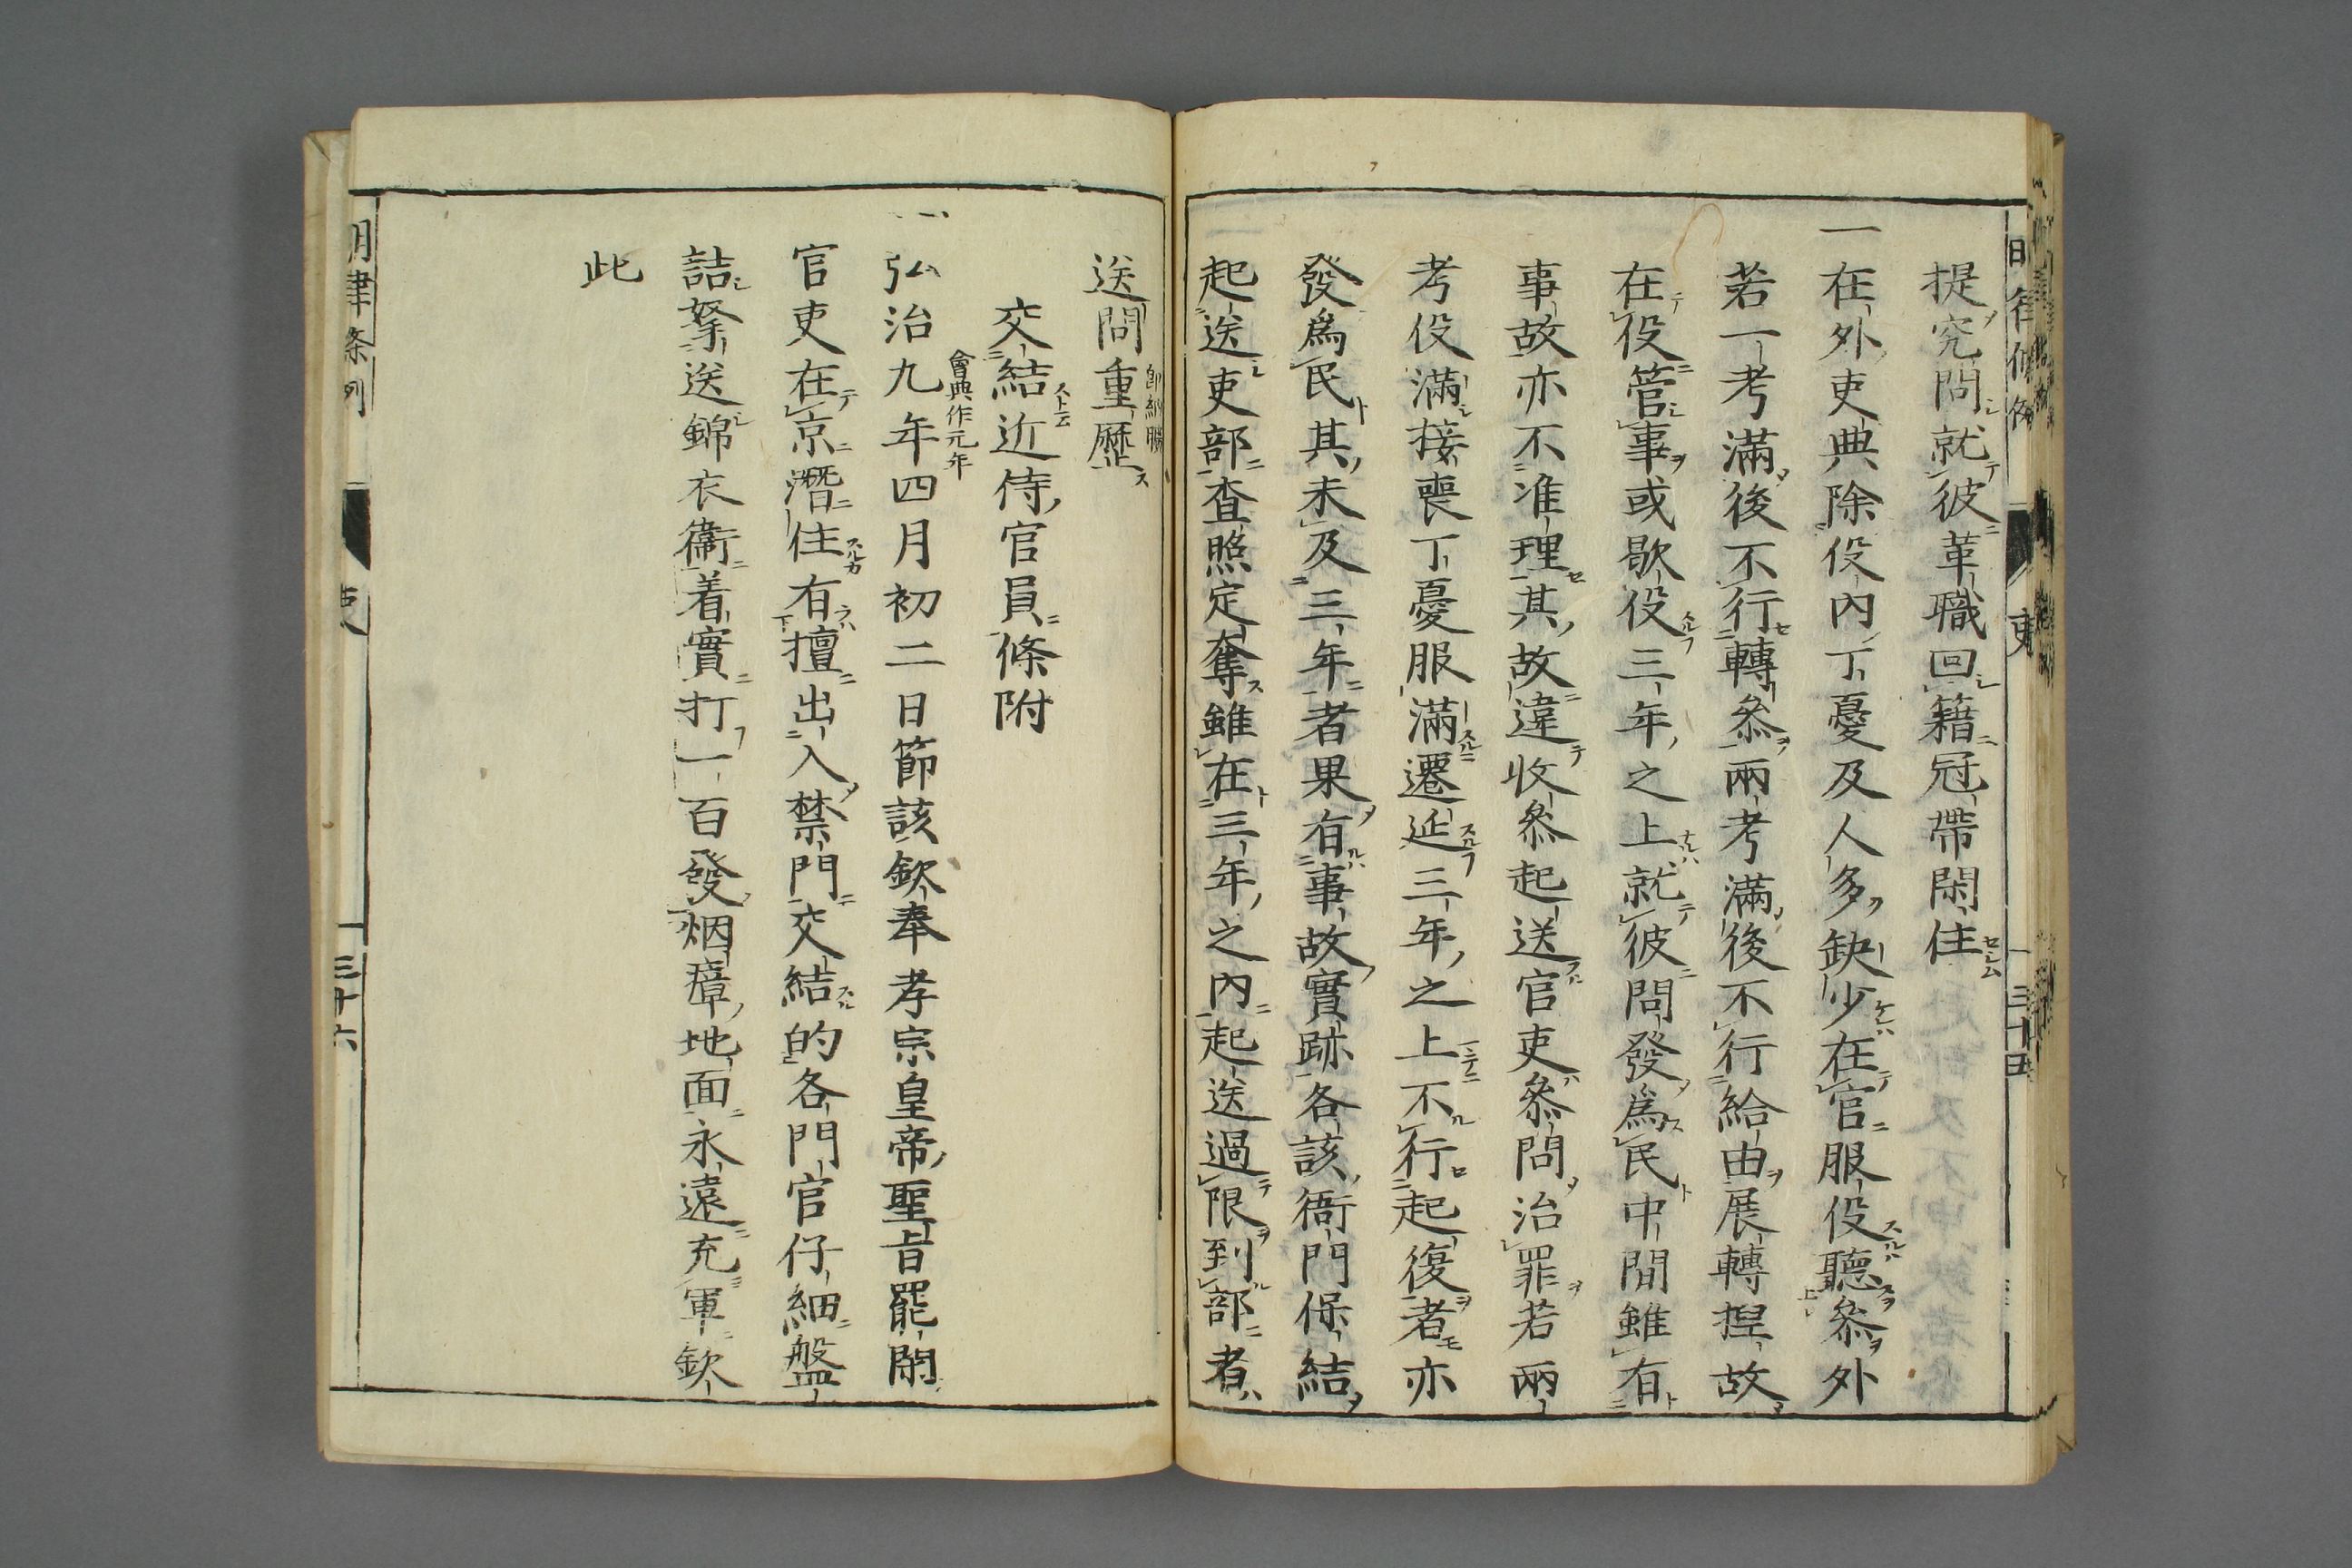 提究問就彼革職回籍冠帶閑住
一在外吏典除役内丁憂及人多缺少在官服役聽參外
若一考滿後不行轉參兩考滿後不行給由展轉捏故
在役管事或歇役三年之上就彼問發爲民中間雖有
事故亦不准理其故違收參起送官吏參問治罪若兩
考役滿接喪丁憂服滿遷延三年之上不行起復者亦
發爲民其未及三年者果有事故實跡各該衙門保結
起送吏部査照定奪雖在三年之内起送過限到部者
送問重歴
交結近侍官員條附
會典作元年
一弘治九年四月初二日節該欽奉孝宗皇帝聖旨罷閑
官吏在京潛住有擅出入禁門交結的各門官仔細盤
詰拏送錦衣衞着實打一百發烟瘴地面永遠充軍欽
此
明律條例
吏
三十六